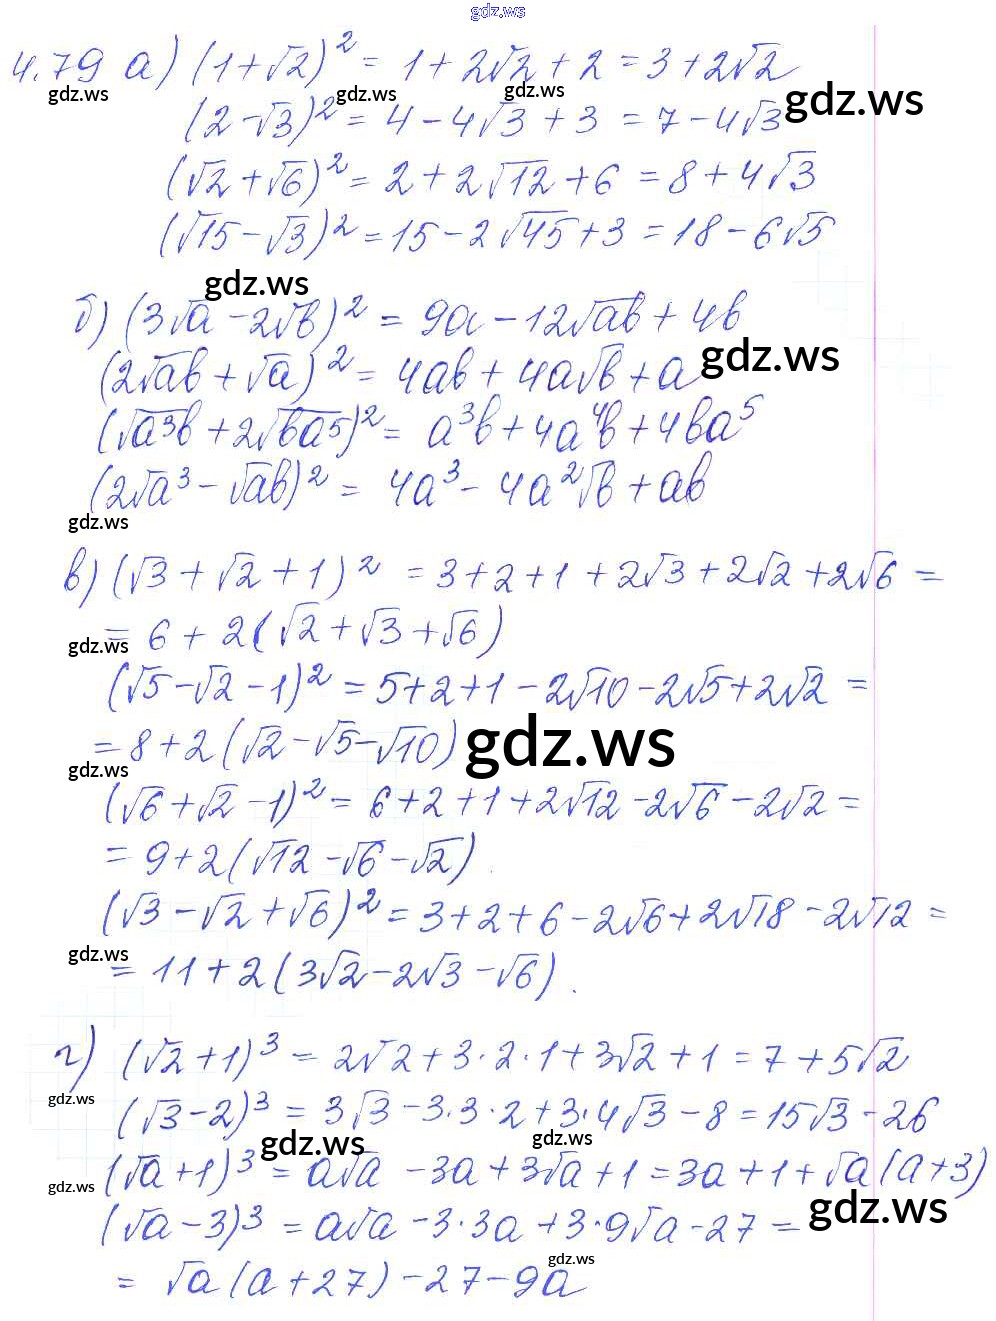 gdz.ws
4.79 а) (1+√2)² = 1 + 2√2 + 2 = 3 + 2√2
gdz.ws gdz.ws gdz.ws gdz.ws
(2-√3)² = 4 - 4√3 + 3 = 7 - 4√3
(√2 + √6)² = 2 + 2√12 + 6 = 8 + 4√3
(√15 - √3)² = 15 - 2√45 + 3 = 18 - 6√5
gdz.ws
б) (3√a - 2√b)² = 9a - 12√ab + 4b
(2√ab + √a)² = 4ab + 4a√b + a
gdz.ws
(√a³b + 2√ba⁵)² = a³b + 4a⁴b + 4ba⁵
(2√a³ - √ab)² = 4a³ - 4a²√b + ab
gdz.ws
в) (√3 + √2 + 1)² = 3 + 2 + 1 + 2√3 + 2√2 + 2√6 =
= 6 + 2(√2 + √3 + √6)
gdz.ws
(√5 - √2 - 1)² = 5 + 2 + 1 - 2√10 - 2√5 + 2√2 =
= 8 + 2(√2 - √5 - √10)
gdz.ws
gdz.ws
(√6 + √2 - 1)² = 6 + 2 + 1 + 2√12 - 2√6 - 2√2 =
= 9 + 2(√12 - √6 - √2)
(√3 - √2 + √6)² = 3 + 2 + 6 - 2√6 + 2√18 - 2√12 =
gdz.ws
= 11 + 2(3√2 - 2√3 - √6).
г) (√2 + 1)³ = 2√2 + 3·2·1 + 3√2 + 1 = 7 + 5√2
gdz.ws
(√3 - 2)³ = 3√3 - 3·3·2 + 3·4√3 - 8 = 15√3 - 26
gdz.ws gdz.ws
(√a + 1)³ = a√a - 3a + 3√a + 1 = 3a + 1 + √a(a + 3)
gdz.ws gdz.ws
(√a - 3)³ = a√a - 3·3a + 3·9√a - 27 =
gdz.ws
= √a(a + 27) - 27 - 9a